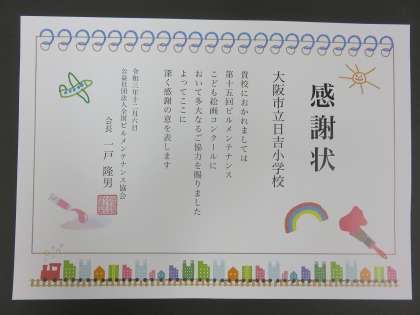 感謝状
大阪市立日吉小学校
貴校におかれましては
第十五回ビルメンテナンス
こども絵画コンクールに
おいて多大なるご協力を賜りました
よってここに
深く感謝の意を表します
令和三年十二月六日
公益社団法人全国ビルメンテナンス協会
会長 一戸隆男